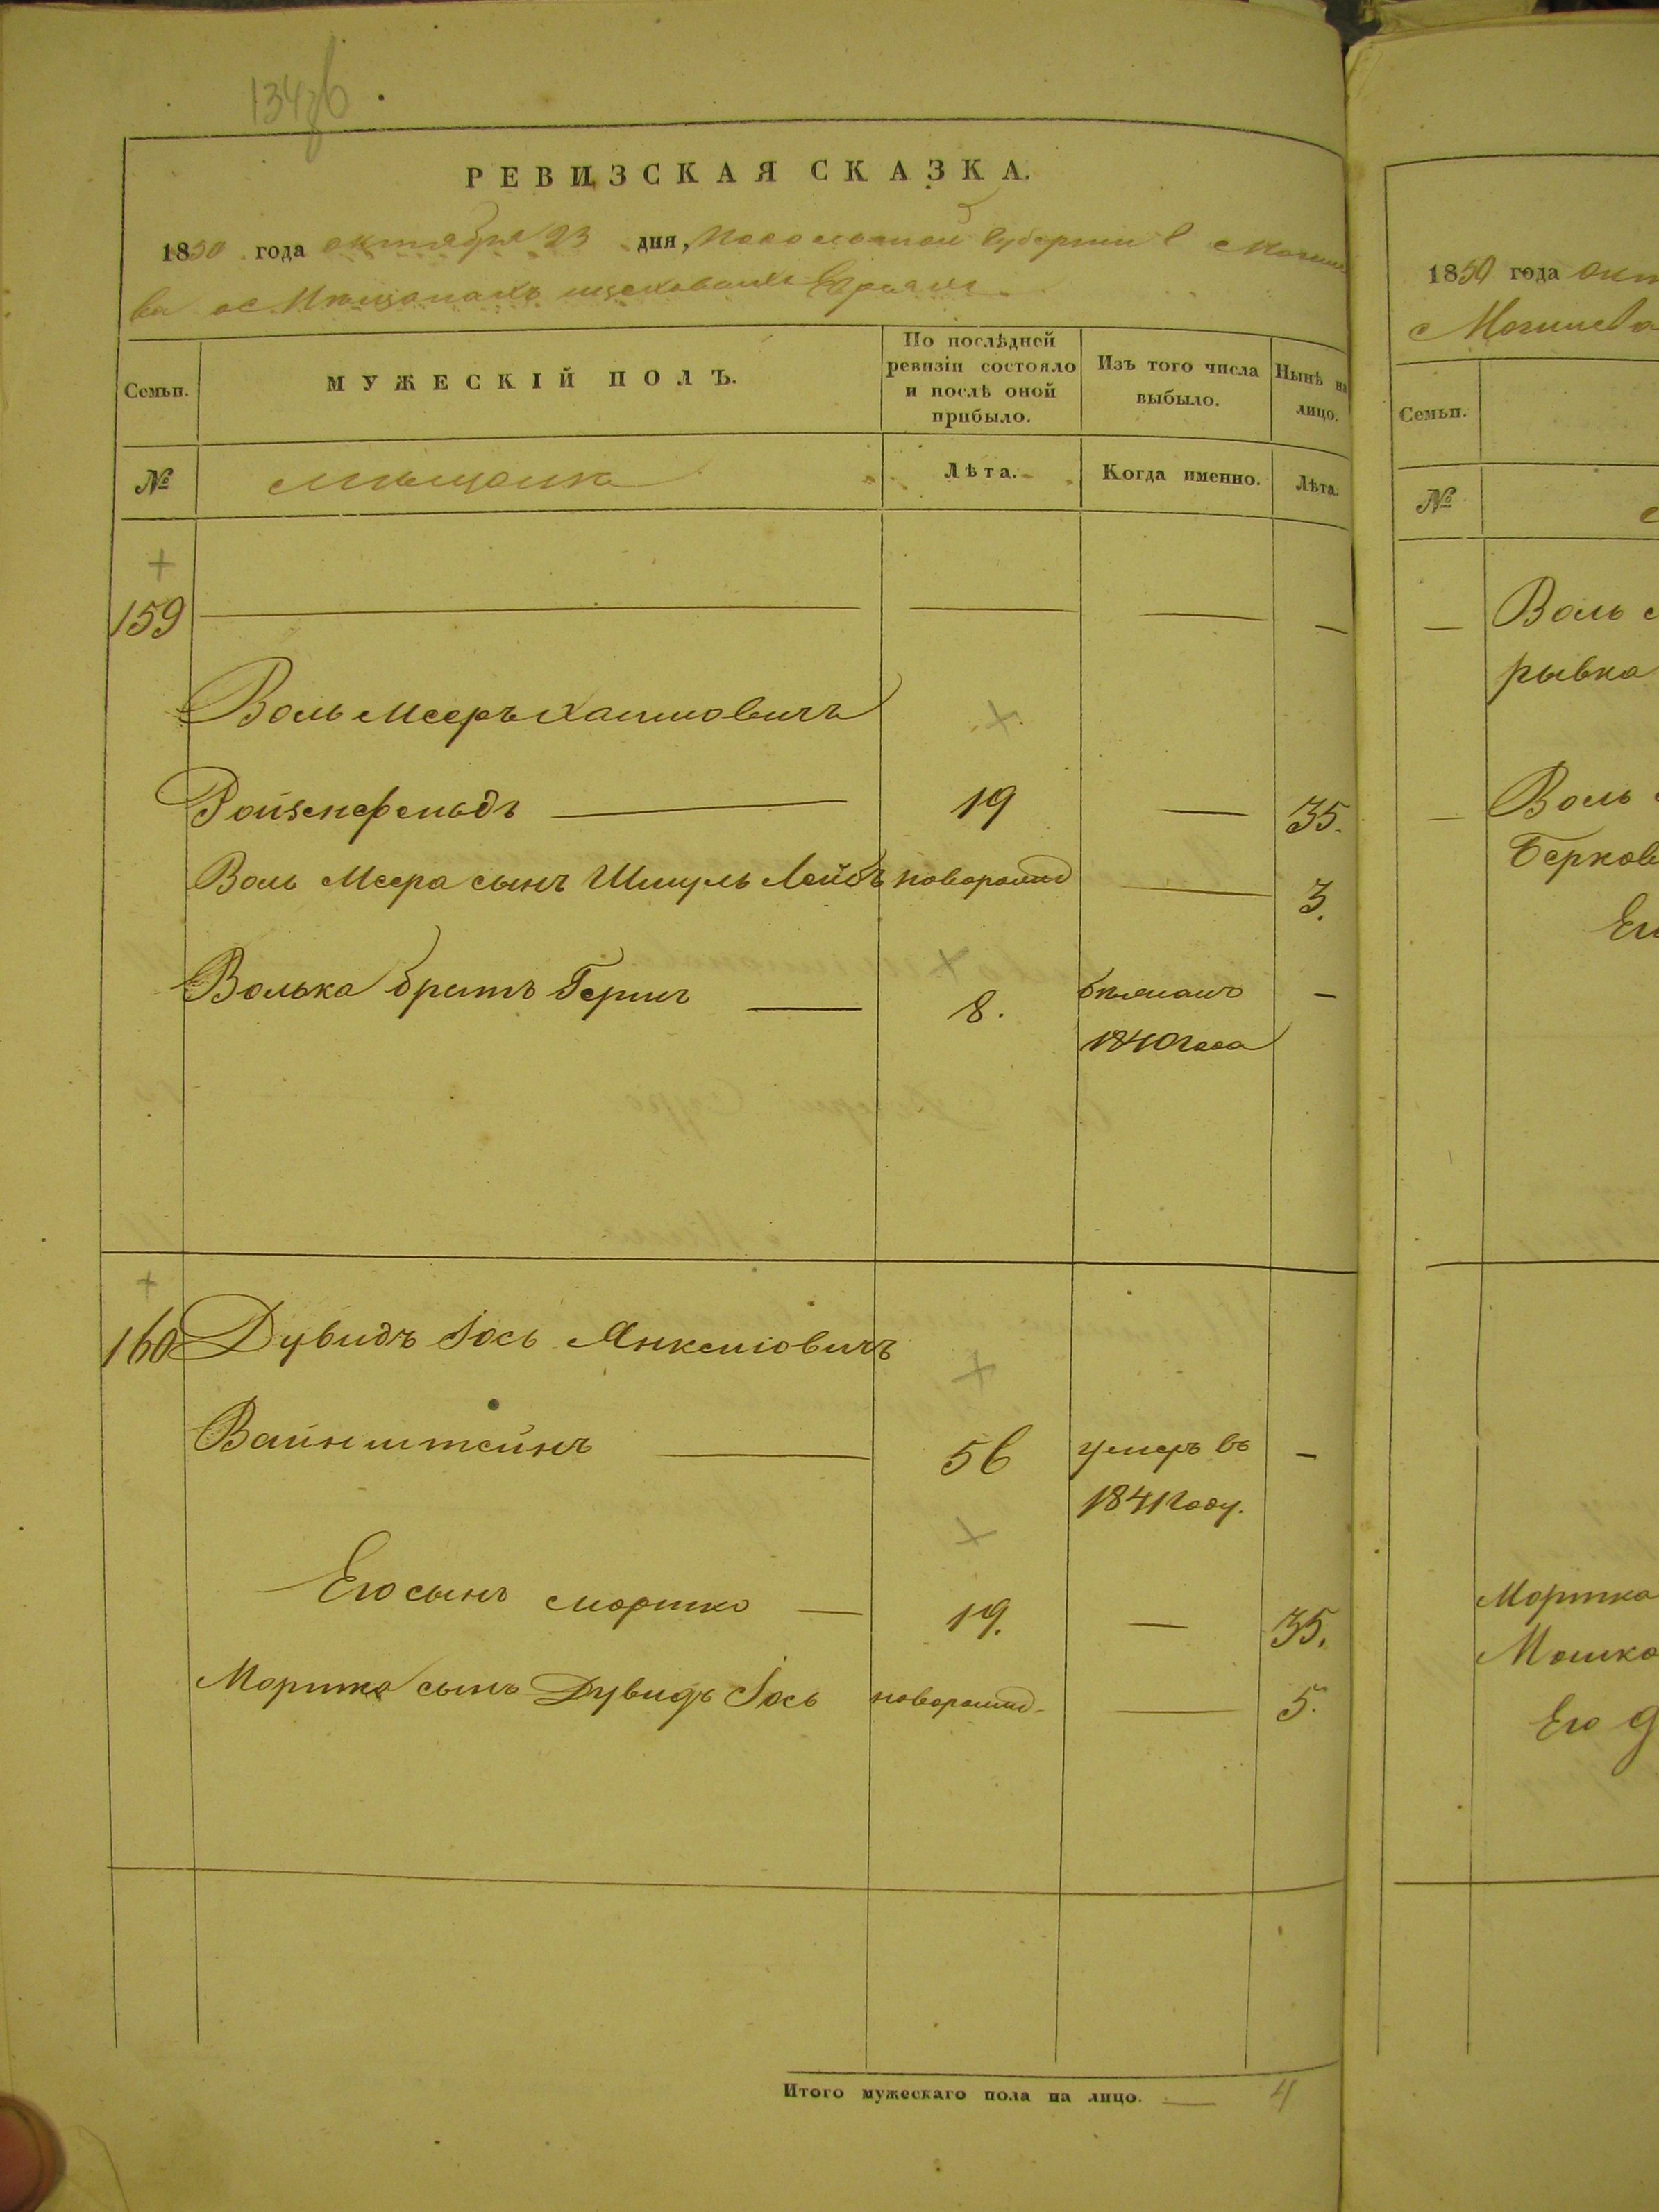 134
РЕВИЗСКАЯ СКАЗКА.
1850 года октября 23 дня, Подольской Губернии
Семьи.
МУЖЕСКІЙ ПОЛЪ.
По послѣдней ревизіи состояло и послѣ оной прибыло.
Изъ того числа выбыло.
Нынѣ на лицо.
№
Лѣта.
Когда именно.
Лѣта.
159
Воль Мееръ Хаимовичъ
Ройзенфельдъ 19 35.
Воль Меера сынъ Шмуль Лейбъ новорожд 3.
Волька братъ Гершъ 8. 1840 года
160 Дувидъ Іось Янкеліовичъ
Вайнштейнъ 56 умеръ въ
1841 году.
Его сынъ Мортко 19. 35.
Мортка сынъ Дувидъ Іось новорожд. 5.
Итого мужескаго пола на лицо. 4
1850 года окт
Могилева
Семьи.
№
Воль
рывка
Воль
Берков
Мортка
Мошко
Его